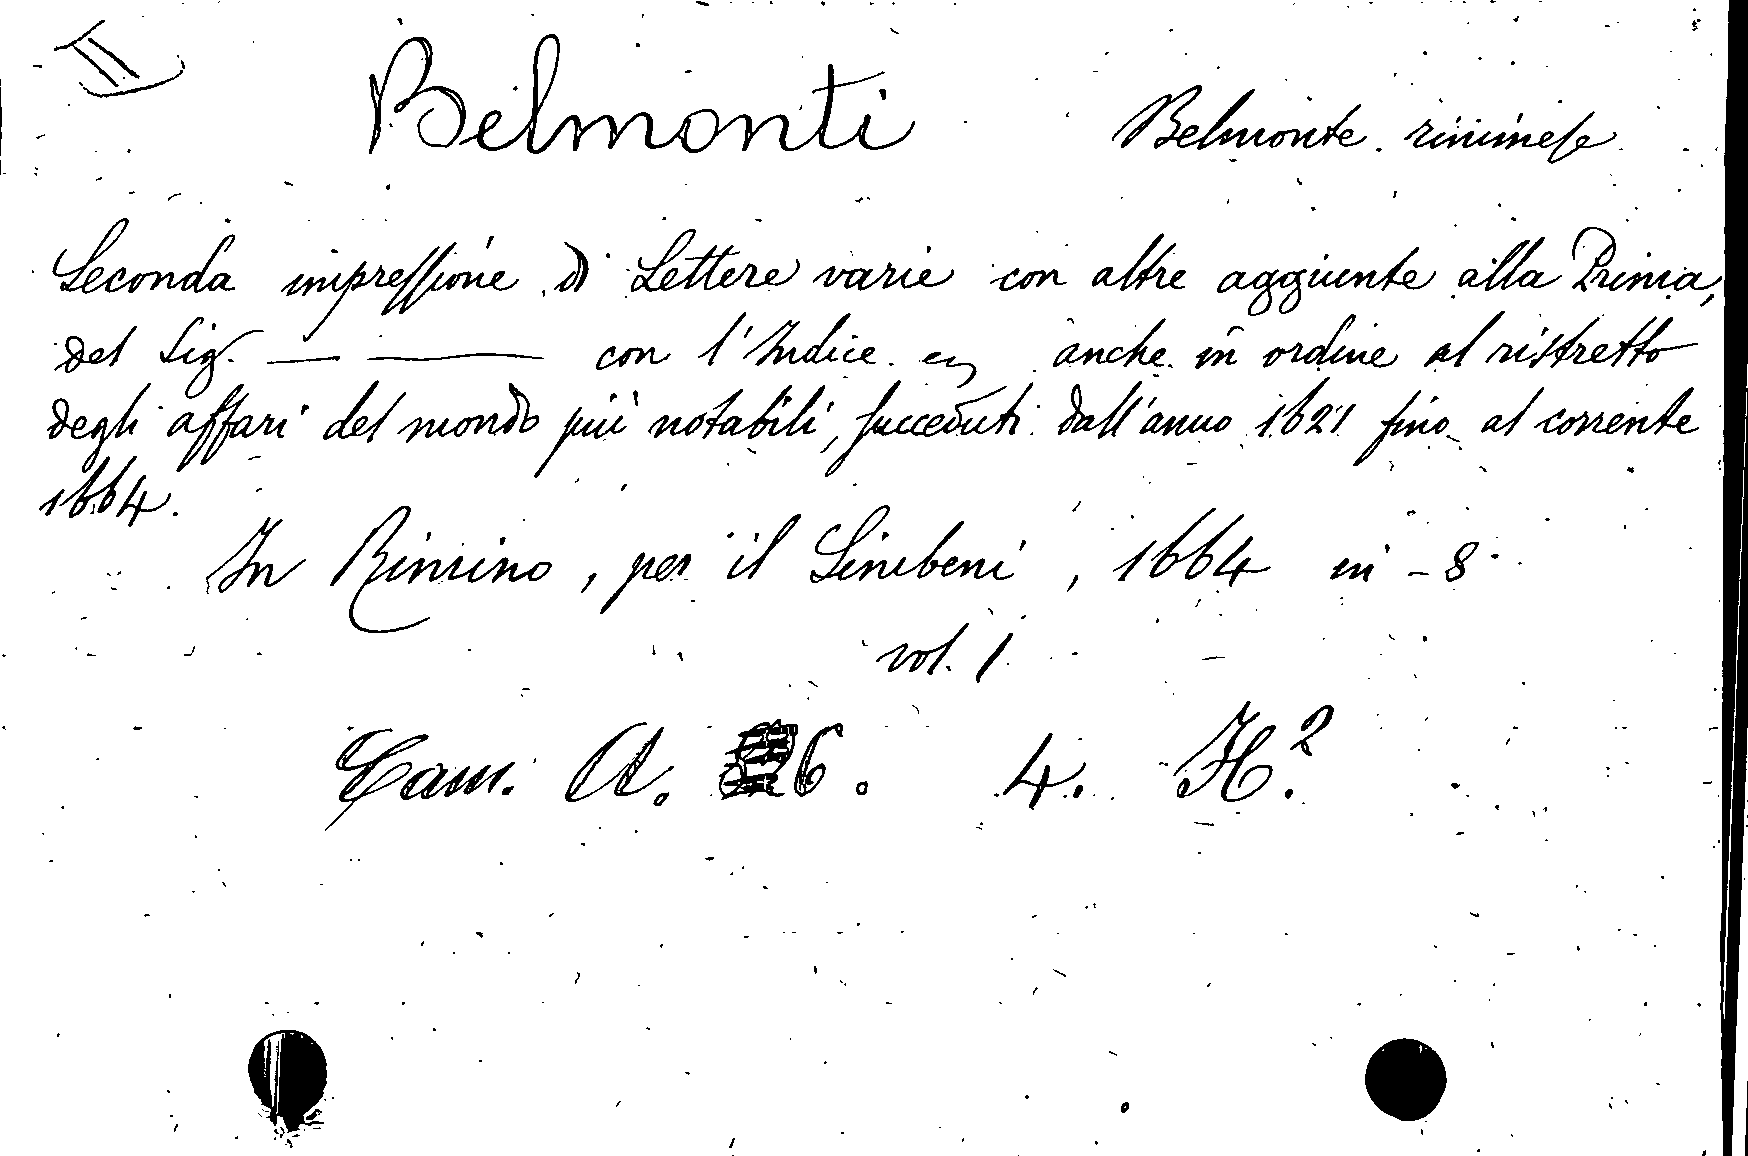 II
Belmonti Belmonte riminese
Seconda impressione di Lettere varie con altre aggiunte alla Prima,
del Sig. — —— con l'Indice en anche in ordine al ristretto
degli affari del mondo più notabili, succeduti dall'anno 1621 fino al corrente
1664.
In Rimino, per il Simbeni, 1664 in-8
vol. 1
Cam. A. 6. 4. H.²